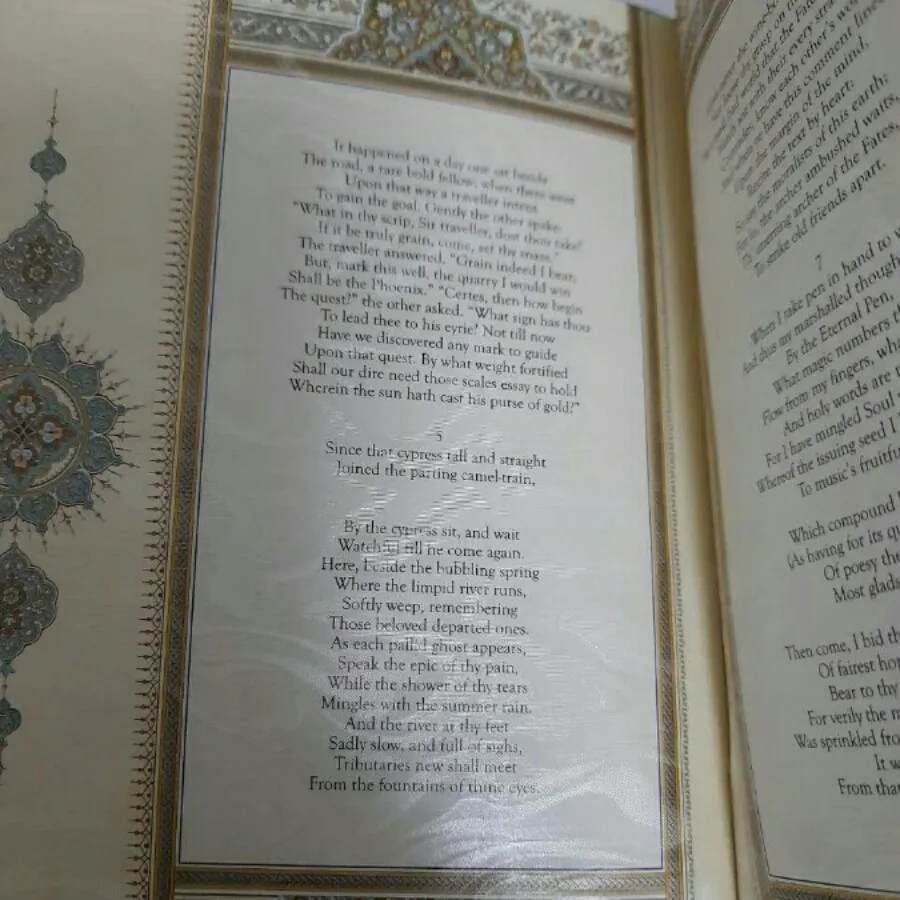 It happened on a day one sat beside
The road, a rare bold fellow, when there went
Upon that way a traveller intent
To gain the goal. Gently the other spake:
"What in thy scrip, Sir traveller, dost thou take?
If it be truly grain, come, set thy snare."
The traveller answered. "Grain indeed I bear,
But, mark this well, the quarry I would win
Shall be the Phoenix." "Certes, then how begin
The quest?" the other asked. "What sign has thou
To lead thee to his eyrie? Not till now
Have we discovered any mark to guide
Upon that quest. By what weight fortified
Shall our dire need those scales essay to hold
Wherein the sun hath cast his purse of gold?"
5
Since that cypress tall and straight
Joined the parting camel-train,
By the cypress sit, and wait
Watchful till he come again.
Here, beside the bubbling spring
Where the limpid river runs,
Softly weep, remembering
Those beloved departed ones.
As each pallid ghost appears,
Speak the epic of thy pain,
While the shower of thy tears
Mingles with the summer rain.
And the river at thy feet
Sadly slow, and full of sighs,
Tributaries new shall meet
From the fountains of thine eyes.
know each other's
have this comment
Upon the margin of the mind,
the text by heart:
the moralists of this earth;
the archer ambushed waits,
unerring archer of the Fates,
To strike old friends apart.
7
When I take pen in hand to
And thus my marshalled
By the Eternal Pen,
What magic numbers
Flow from my fingers,
And holy words are
For I have mingled Soul
Whereof the issuing seed I
To music's
Which compound
(As having for its
Of poesy the
Most
Then come, I bid
Of fairest
Bear to thy
For verily the
Was sprinkled
It
From